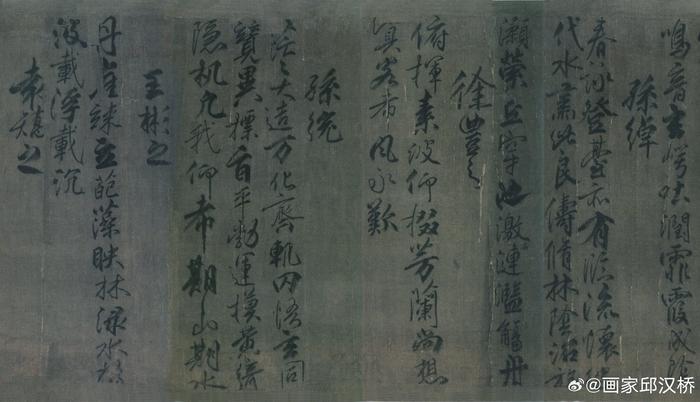 鳴音玄崿吐潤霏霞成陰
孫綽
春詠登臺亦有臨流懷彼
伐木肅此良儔脩林陰沼旋
瀨縈丘穿池激連濫觴舟
徐豐之
俯揮素波仰掇芳蘭尚想
客希風永歎
孫統
茫〻大造万化齊軌罔悟玄同
競異摽旨平勃運謨黃綺
隱机凡我仰希期山期水
王彬之
丹崖竦立葩藻映林淥水揚
波載浮載沉
袁嶠之
@画家邱汉桥